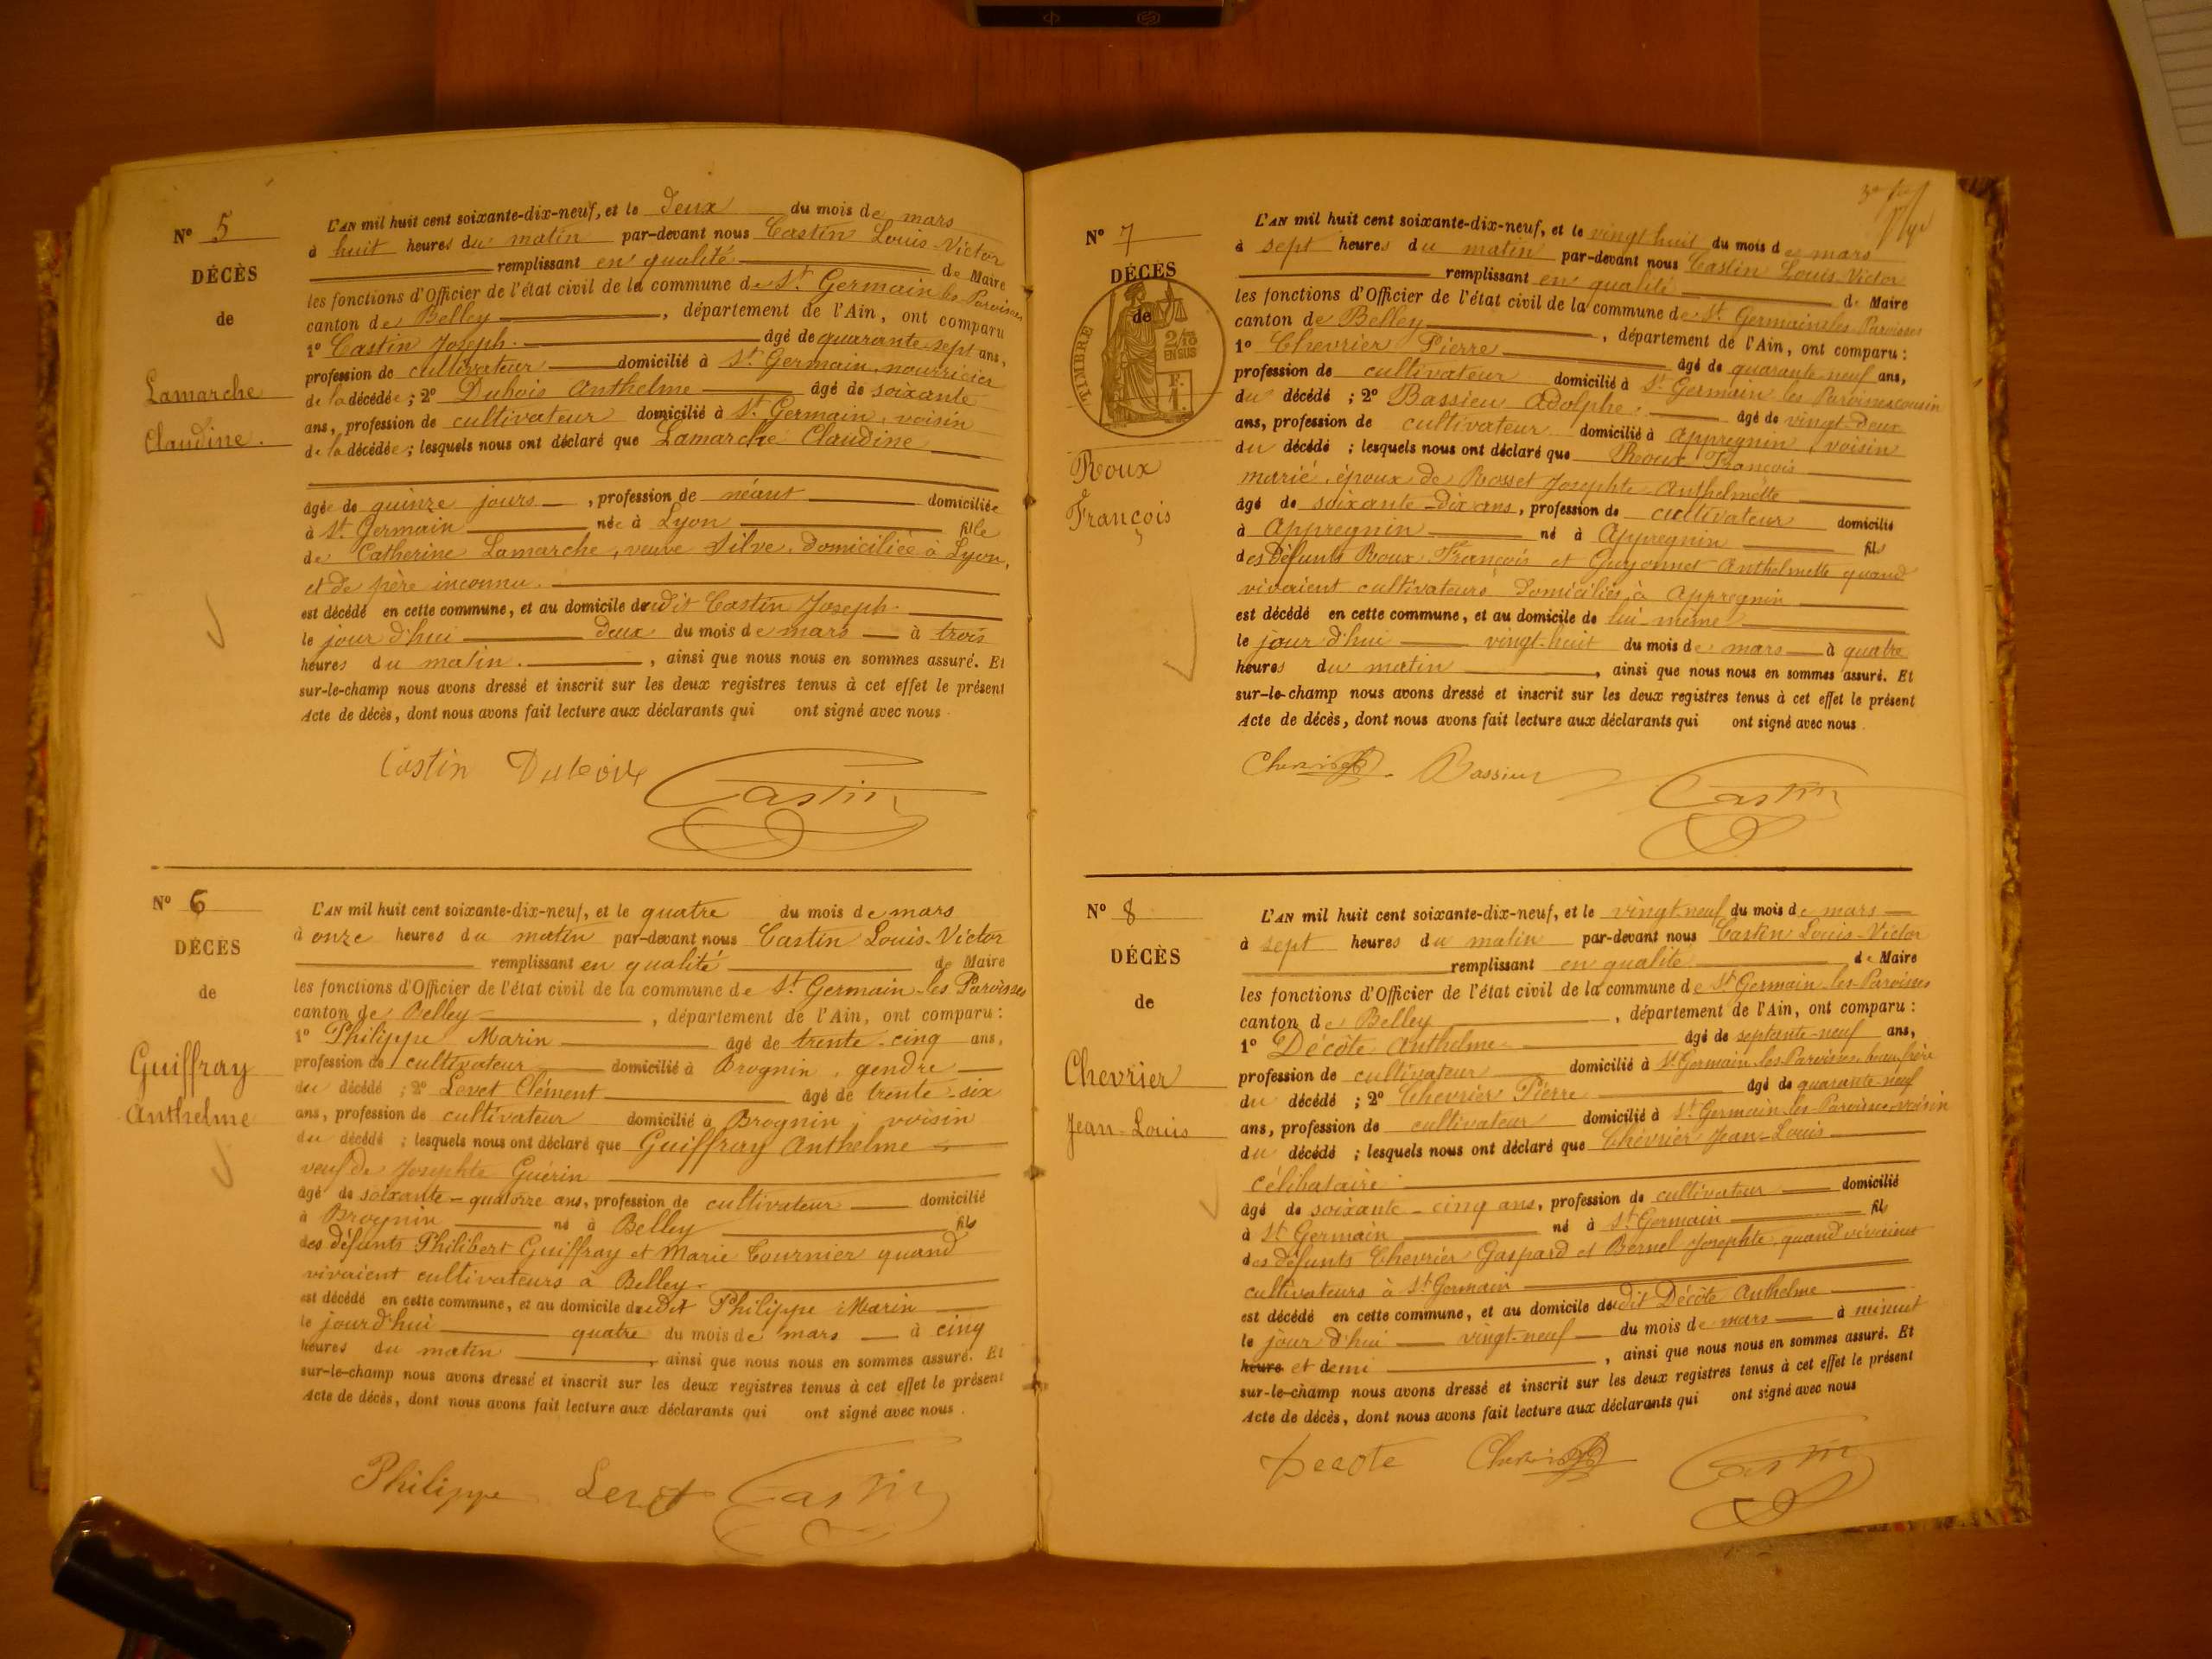 N° 5
DÉCÈS
de
Lamarche
Claudine.
L'AN mil huit cent soixante-dix-neuf, et le deux du mois de mars
à huit heures du matin par-devant nous Castin Louis-Victor
remplissant en qualité de Maire
les fonctions d'Officier de l'état civil de la commune de St. Germain les Paroisses
canton de Belley, département de l'Ain, ont comparu
1° Castin Joseph. âgé de quarante-sept ans,
profession de cultivateur domicilié à St. Germain, nourricier
de la décédée; 2° Dubois Anthelme âgé de soixante
ans, profession de cultivateur domicilié à St. Germain, voisin
de la décédée; lesquels nous ont déclaré que Lamarche Claudine
âgée de quinze jours, profession de néant domiciliée
à St. Germain née à Lyon fille
de Catherine Lamarche, veuve Silve, domiciliée à Lyon,
et de père inconnu.
est décédé en cette commune, et au domicile dudit Castin Joseph.
le jour d'hui deux du mois de mars à trois
heures du matin., ainsi que nous nous en sommes assuré. Et
sur-le-champ nous avons dressé et inscrit sur les deux registres tenus à cet effet le présent
Acte de décès, dont nous avons fait lecture aux déclarants qui ont signé avec nous.
Castin Dubois Castin
N° 6
DÉCÈS
de
Guiffray
Anthelme
L'AN mil huit cent soixante-dix-neuf, et le quatre du mois de mars
à onze heures du matin par-devant nous Castin Louis-Victor
remplissant en qualité de Maire
les fonctions d'Officier de l'état civil de la commune de St. Germain-les Paroisses
canton de Belley, département de l'Ain, ont comparu:
1° Philippe Marin âgé de trente-cinq ans,
profession de cultivateur domicilié à Brognin, gendre
du décédé; 2° Levet Clément âgé de trente-six
ans, profession de cultivateur domicilié à Brognin, voisin
du décédé; lesquels nous ont déclaré que Guiffray Anthelme
veuf de Josephte Guérin
âgé de soixante-quatorze ans, profession de cultivateur domicilié
à Brognin né à Belley fils
des défunts Philibert Guiffray et Marie Tournier quand
vivaient cultivateurs à Belley.
est décédé en cette commune, et au domicile dudit Philippe Marin
le jourd'hui quatre du mois de mars à cinq
heures du matin, ainsi que nous nous en sommes assuré. Et
sur-le-champ nous avons dressé et inscrit sur les deux registres tenus à cet effet le présent
Acte de décès, dont nous avons fait lecture aux déclarants qui ont signé avec nous.
Philippe Levet Castin
N° 7
DÉCÈS
de
TIMBRE
2/10
EN SUS
Roux
François
L'AN mil huit cent soixante-dix-neuf, et le vingt huit du mois de mars
à sept heures du matin par-devant nous Castin Louis-Victor
remplissant en qualité de Maire
les fonctions d'Officier de l'état civil de la commune de St. Germain les Paroisses
canton de Belley, département de l'Ain, ont comparu:
1° Chevrier Pierre âgé de quarante-neuf ans,
profession de cultivateur domicilié à St. Germain les Paroisses cousin
du décédé; 2° Bassieu Adolphe. âgé de vingt-deux
ans, profession de cultivateur domicilié à Appregnin, voisin
du décédé; lesquels nous ont déclaré que Roux François
marié, époux de Rosset Josephte-Anthelmette
âgé de soixante-dix ans, profession de cultivateur domicilié
à Appregnin né à Appregnin fils
des défunts Roux François et Guyonnet Anthelmette quand
vivaient cultivateurs domiciliés à Appregnin
est décédé en cette commune, et au domicile de lui-même
le jour d'hui vingt-huit du mois de mars à quatre
heures du matin, ainsi que nous nous en sommes assuré. Et
sur-le-champ nous avons dressé et inscrit sur les deux registres tenus à cet effet le présent
Acte de décès, dont nous avons fait lecture aux déclarants qui ont signé avec nous.
Chevrier Bassieu Castin
N° 8
DÉCÈS
de
Chevrier
Jean-Louis
L'AN mil huit cent soixante-dix-neuf, et le vingt-neuf du mois de mars
à sept heures du matin par-devant nous Castin Louis-Victor
remplissant en qualité de Maire
les fonctions d'Officier de l'état civil de la commune de St Germain-les-Paroisses
canton de Belley, département de l'Ain, ont comparu:
1° Décôte Anthelme âgé de septante-neuf ans,
profession de cultivateur domicilié à St. Germain-les-Paroisses, beau-frère
du décédé; 2° Chevrier Pierre âgé de quarante-neuf
ans, profession de cultivateur domicilié à St. Germain-les-Paroisses voisin
du décédé; lesquels nous ont déclaré que Chevrier Jean-Louis
célibataire
âgé de soixante-cinq ans, profession de cultivateur domicilié
à St Germain né à St. Germain fils
des défunts Chevrier Gaspard et Bernel Josephte, quand vivaient
cultivateurs à St. Germain
est décédé en cette commune, et au domicile dudit Décôte Anthelme
le jour d'hui vingt-neuf du mois de mars à minuit
heure et demi, ainsi que nous nous en sommes assuré. Et
sur-le-champ nous avons dressé et inscrit sur les deux registres tenus à cet effet le présent
Acte de décès, dont nous avons fait lecture aux déclarants qui ont signé avec nous
Decote Chevrier Castin